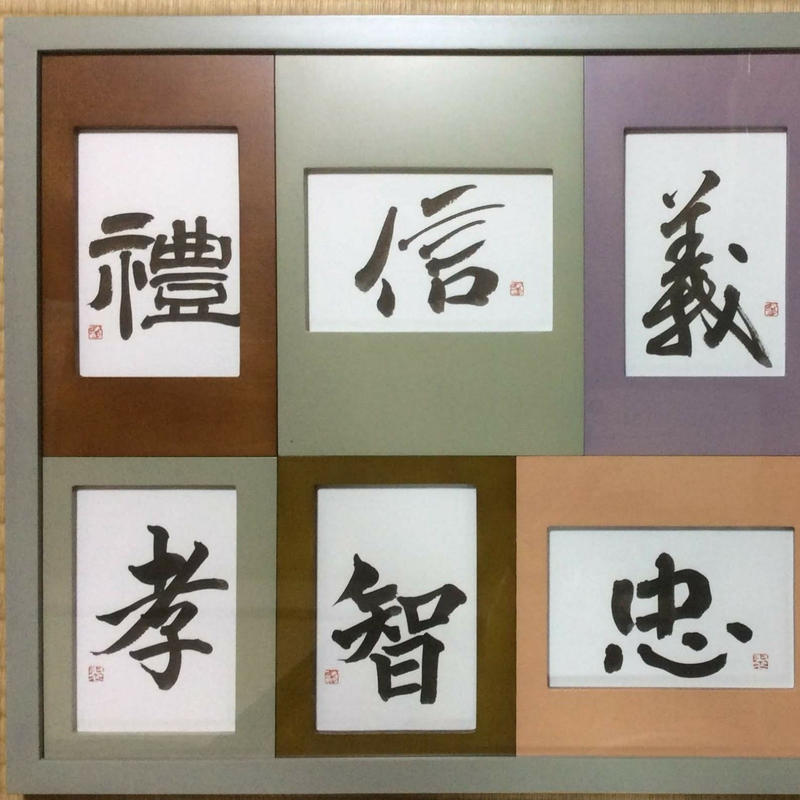 禮
信
義
孝
智
忠